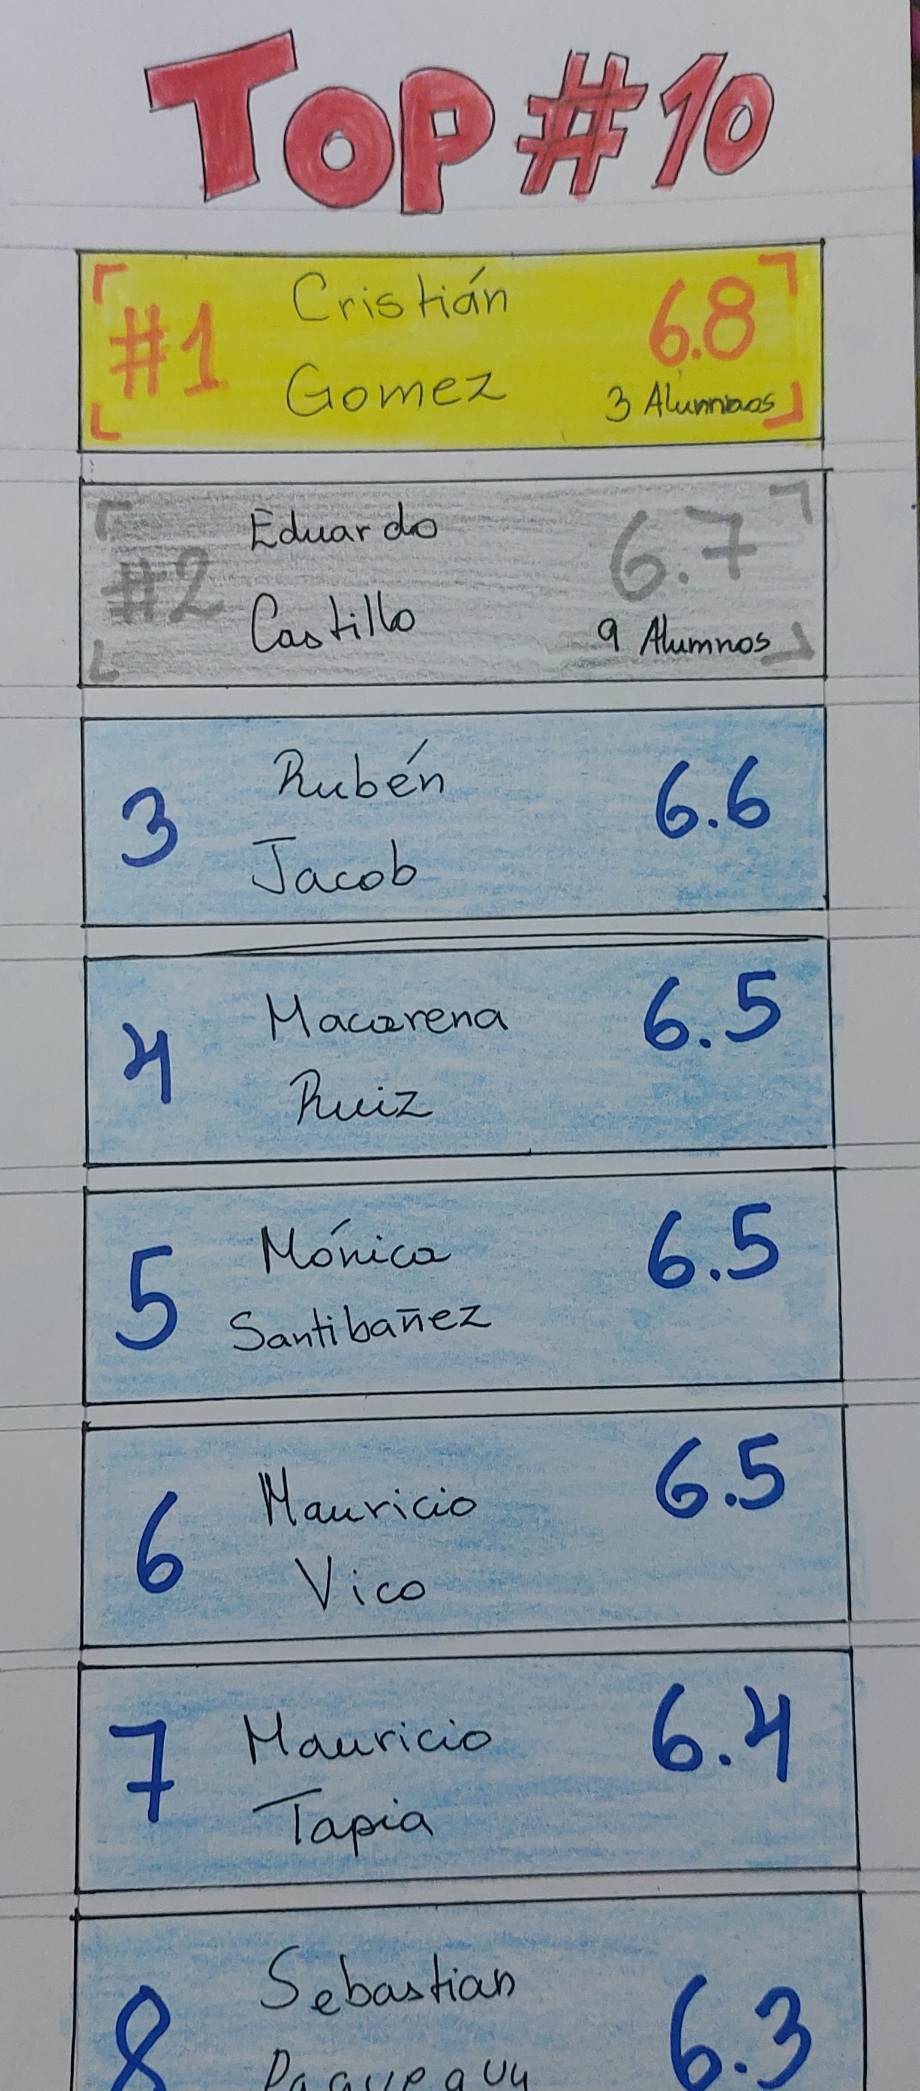 TOP #10
#1 Cristián 6.8
Gomez 3 Alumnos
#2 Eduardo 6.7
Castillo 9 Alumnos
3 Rubén 6.6
Jacob
4 Macarena 6.5
Ruiz
5 Mónica 6.5
Santibañez
6 Mauricio 6.5
Vico
7 Mauricio 6.4
Tapia
8 Sebastian 6.3